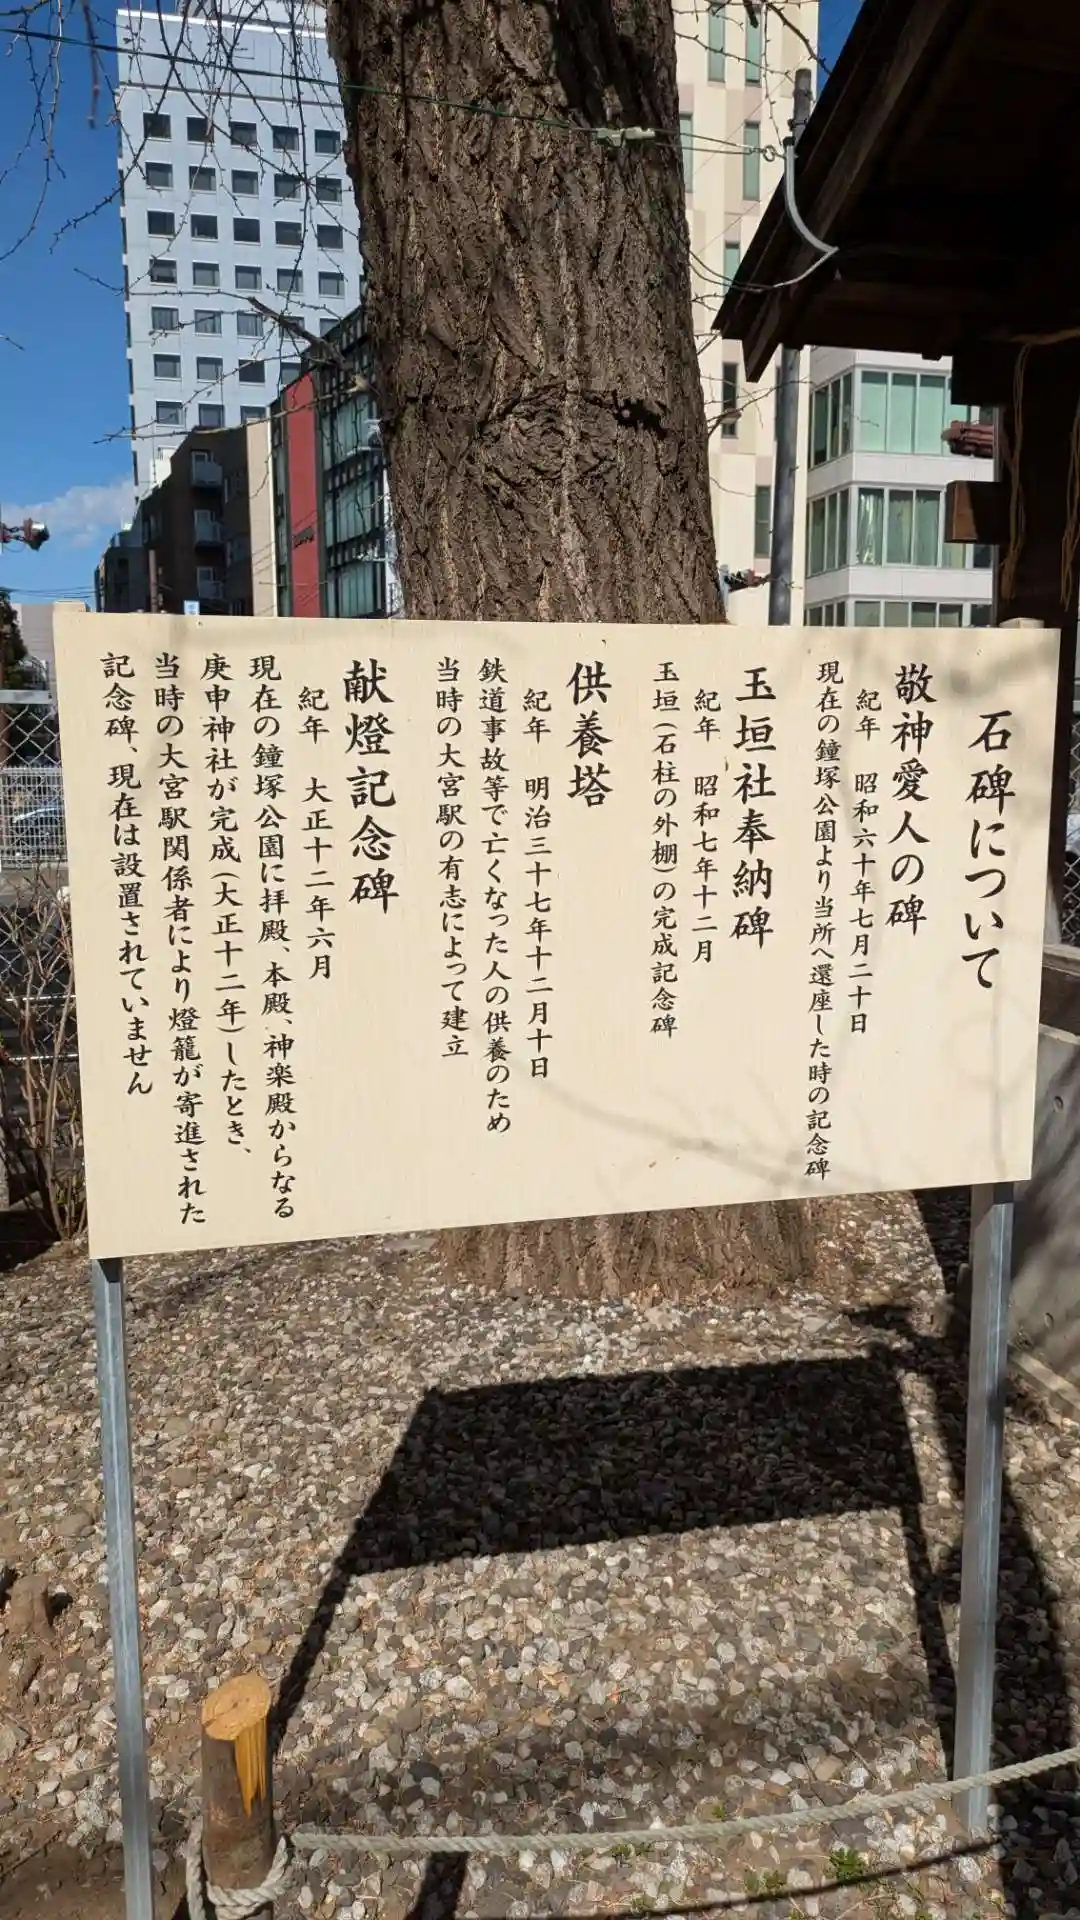 石碑について
敬神愛人の碑
紀年　昭和六十年七月二十日
現在の鐘塚公園より当所へ還座した時の記念碑
玉垣社奉納碑
紀年　昭和七年十二月
玉垣（石柱の外棚）の完成記念碑
供養塔
紀年　明治三十七年十二月十日
鉄道事故等で亡くなった人の供養のため
当時の大宮駅の有志によって建立
献燈記念碑
紀年　大正十二年六月
現在の鐘塚公園に拝殿、本殿、神楽殿からなる
庚申神社が完成（大正十二年）したとき、
当時の大宮駅関係者により燈籠が寄進された
記念碑、現在は設置されていません